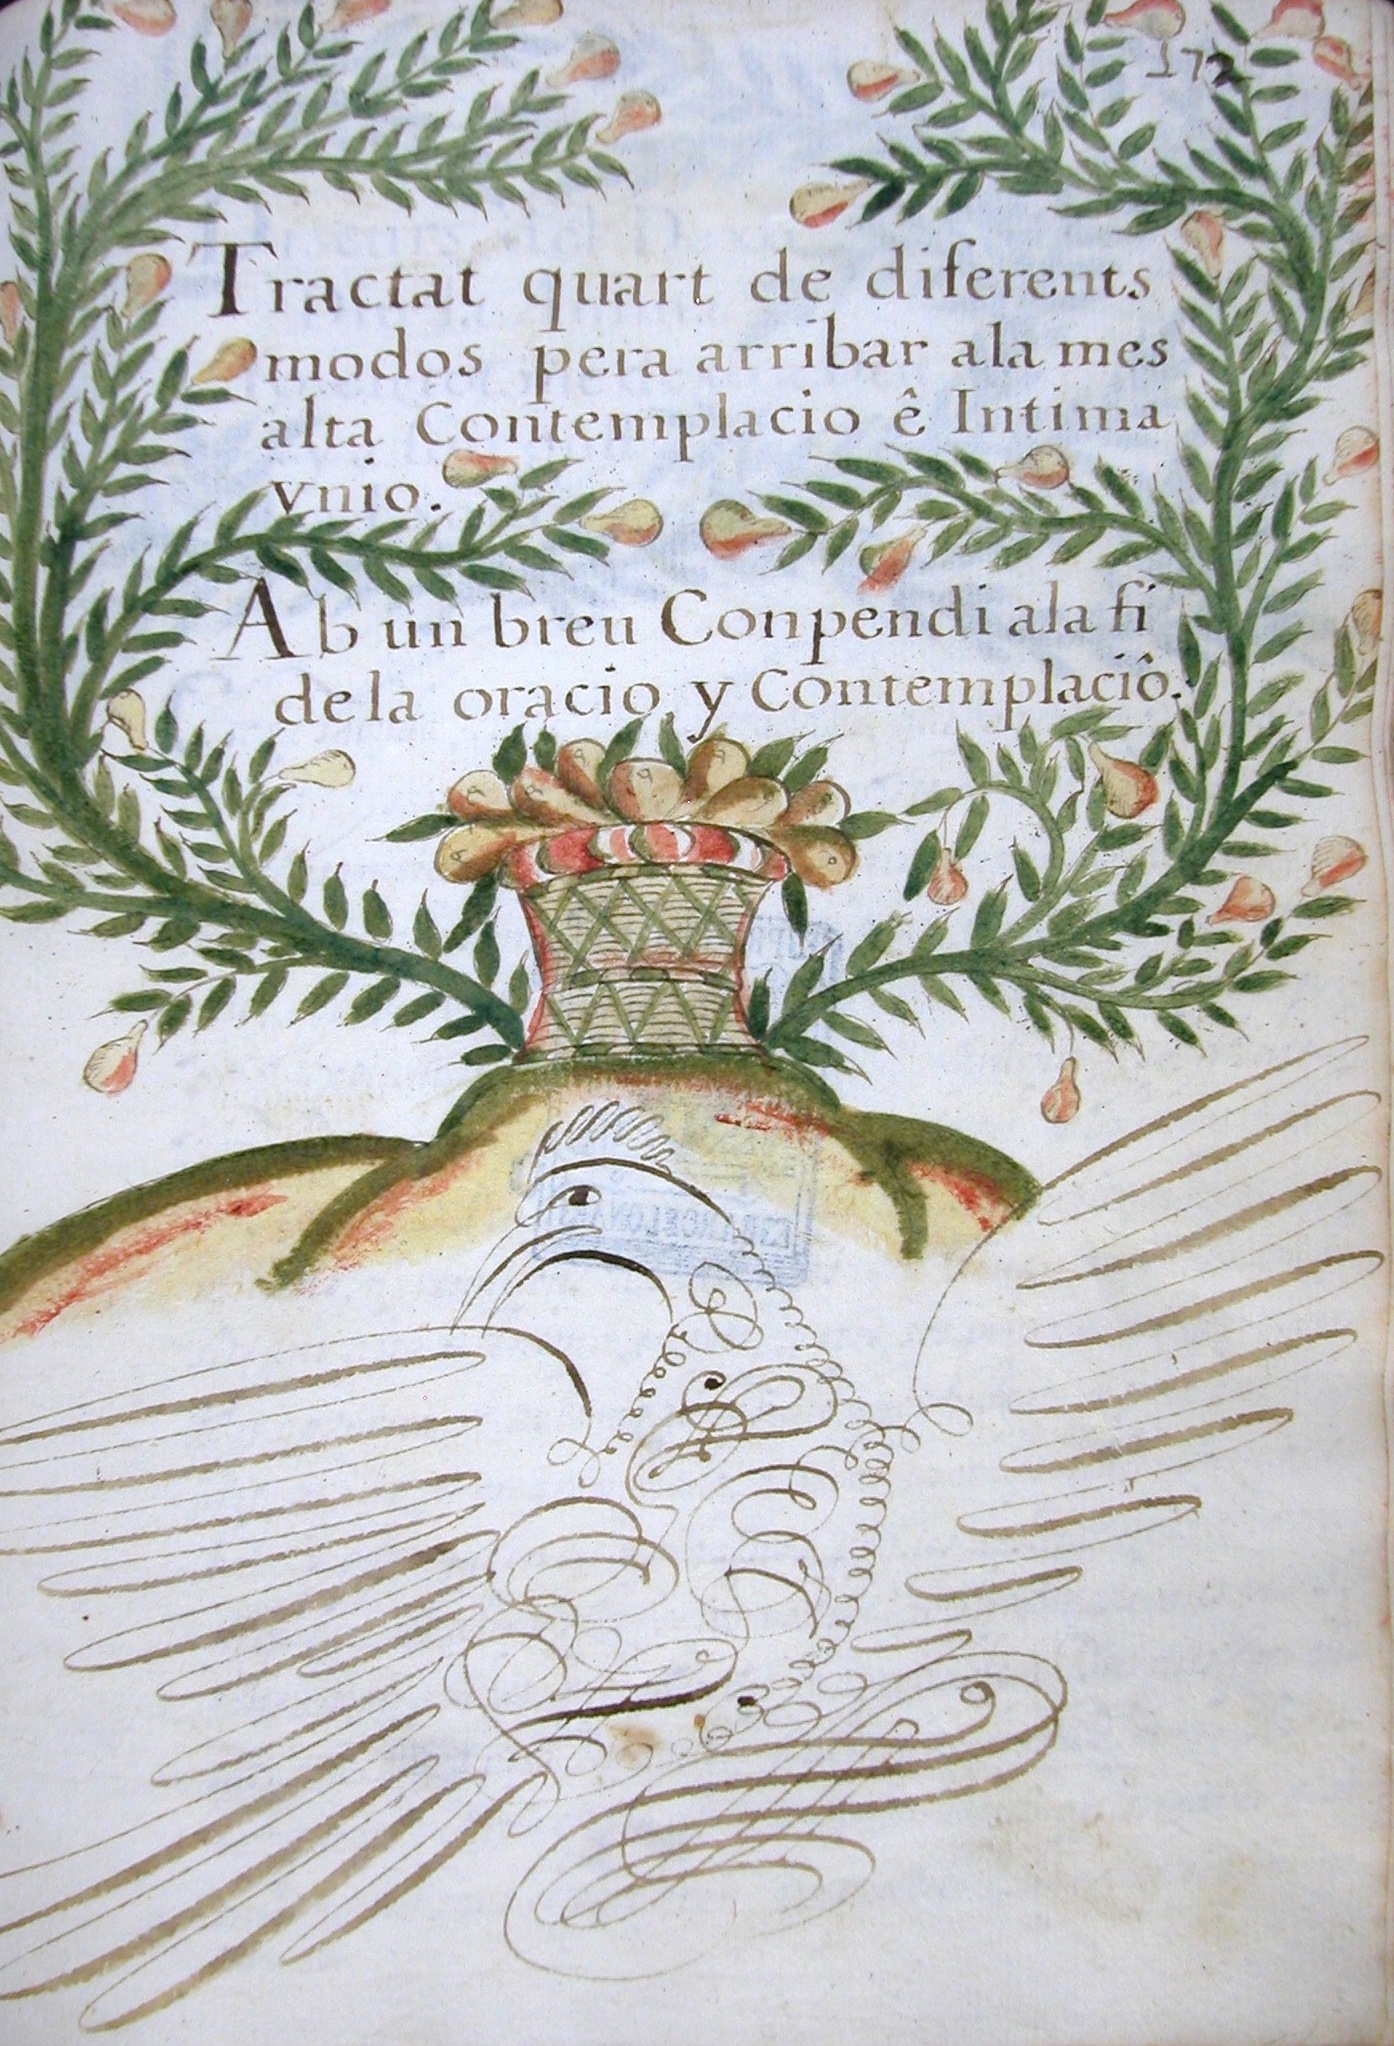 172
Tractat quart de diferents
modos pera arribar ala mes
alta Contemplacio ê Intima
vnio.
Ab un breu Conpendi ala fi
dela oracio y Contemplaciô.